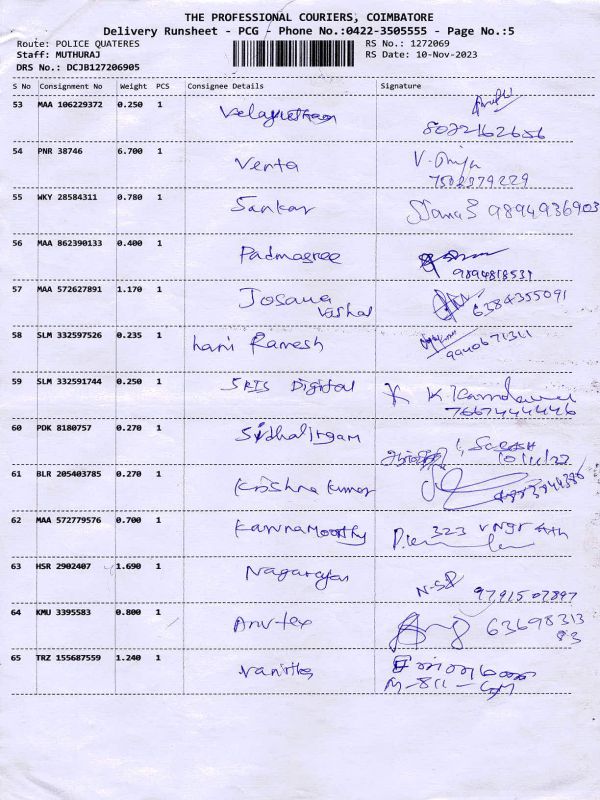 THE PROFESSIONAL COURIERS, COIMBATORE
Delivery Runsheet - PCG - Phone No.:0422-3505555 - Page No.:5
Route: POLICE QUATERES RS No.: 1272069
Staff: MUTHURAJ RS Date: 10-Nov-2023
DRS No.: DCJB127206905
S No Consignment No Weight PCS Consignee Details Signature
53 MAA 106229372 0.250 1
8022162656
54 PNR 38746 6.700 1 Venta
7502979229
55 WKY 28584311 0.780 1 Sankar 9894936903
56 MAA 862390133 0.400 1 Padmasree
9894818531
57 MAA 572627891 1.170 1 Josana Vishal 6384355091
58 SLM 332597526 0.235 1 hani Ramesh 9940671311
59 SLM 332591744 0.250 1 SRIS Digital
7667444446
60 PDK 8180757 0.270 1
61 BLR 205403785 0.270 1 Krishna Kumar
62 MAA 572779576 0.700 1 323
63 HSR 2902407 1.690 1 Nagarajan
64 KMU 3395583 0.800 1 63698313
83
65 TRZ 155687559 1.240 1 Vanitha